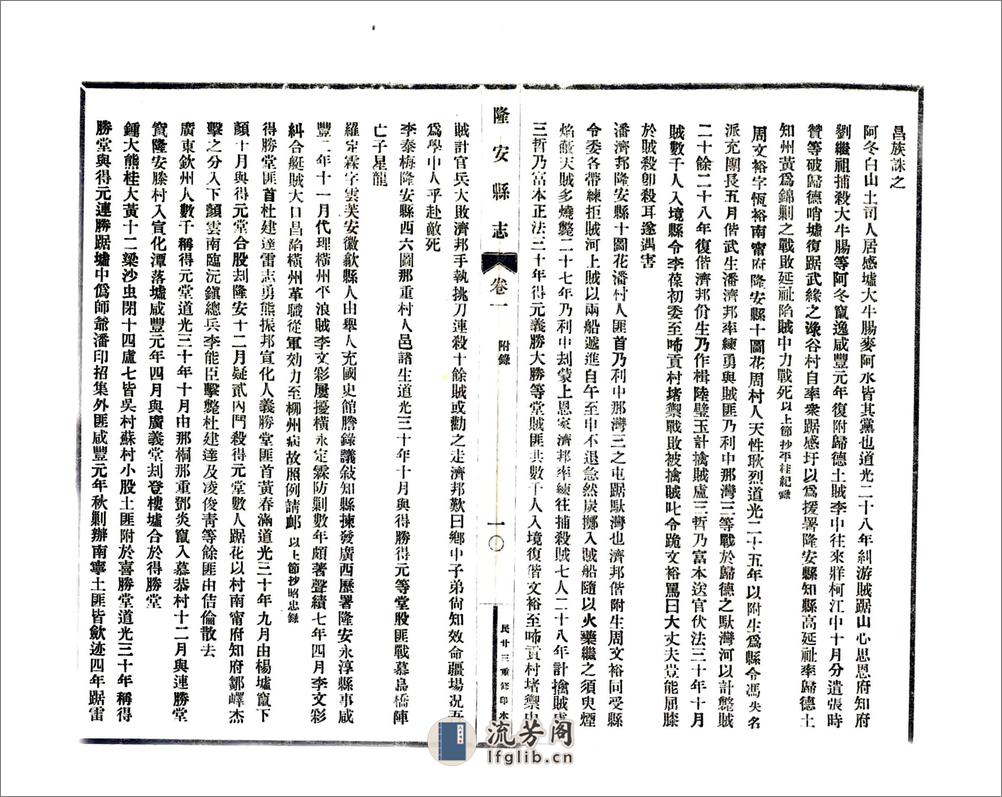 昌族誅之
阿冬白山土司人居感墟大牛腸麥阿水皆其黨也道光二十八年糾游賊踞山心思恩府知府
劉繼祖捕殺大牛腸等阿冬竄逸咸豐元年復附歸德土賊李中往來牂柯江中十月分遣張時
贊等破歸德哨墟復踞武緣之淥谷村自率衆踞感圩以爲援署隆安縣知縣高延祉率歸德土
知州黃爲錦剿之戰敗延祉陷賊中力戰死以上節抄平桂紀畧
周文裕字恆裕南甯府隆安縣十圖花周村人天性耿烈道光二十五年以附生爲縣令馮失名
派充團長五月偕武生潘濟邦率練勇與賊匪乃利中那灣三等戰於歸德之馱灣河以計斃賊
二十餘二十八年復偕濟邦份生乃作楫陸璧玉計擒賊盧三哲乃富本送官伏法三十年十月
賊數千人入境縣令李葆初委至啼貢村堵禦戰敗被擒賊叱令跪文裕罵曰大丈夫豈能屈膝
於賊殺卽殺耳遂遇害
潘濟邦隆安縣十圖花潘村人匪首乃利中那灣三之屯踞馱灣也濟邦偕附生周文裕同受縣
令委各帶練拒賊河上賊以兩船遞進自午至申不退急然炭擲入賊船隨以火藥繼之須臾煙
焰蔽天賊多燒斃二十七年乃利中刦蒙上恩家濟邦率練往捕殺賊七人二十八年計擒賊盧
三哲乃富本正法三十年得元義勝大勝等堂賊匪共數千人入境復偕文裕至啼貢村堵禦中
隆安縣志
卷一
附錄
一〇
民廿三重修印本
賊計官兵大敗濟邦手執挑刀連殺十餘賊或勸之走濟邦歎曰鄉中子弟尙知效命疆場況吾
爲學中人乎赴敵死
李泰梅隆安縣西六圖那重村人邑諸生道光三十年十月與得勝得元等堂股匪戰慕烏橋陣
亡子星龍
羅定霖字雲芙安徽歙縣人由舉人充國史館謄錄議敍知縣揀發廣西歷署隆安永淳縣事咸
豐二年十一月代理橫州平浪賊李文彩屢擾橫永定霖防剿數年頗著聲績七年四月李文彩
糾合艇賊大口昌陷橫州革職從軍効力至柳州病故照例請䘏以上節抄昭忠錄
得勝堂匪首杜建達雷志勇熊振邦宣化人義勝堂匪首黃春滿道光三十年九月由楊墟竄下
顏十月與得元堂合股刦隆安十二月疑貳內鬥殺得元堂數人踞花以村南甯府知府鄒嶧杰
擊之分入下顏雲南臨沅鎭總兵李能臣擊斃杜建達及凌俊靑等餘匪由佶倫散去
廣東欽州人數千稱得元堂道光三十年十月由那桐那重鄧炎竄入慕恭村十二月與連勝堂
竄隆安滕村入宣化潭落墟咸豐元年四月與廣義堂刦登樓墟合於得勝堂
鍾大熊桂大黃十二梁沙虫閉十四盧七皆吳村蘇村小股土匪附於喜勝堂道光三十年稱得
勝堂與得元連勝踞墟中爲師爺潘印招集外匪咸豐元年秋剿辦南寧土匪皆歛迹四年踞雷
流芳閣
lfglib.cn